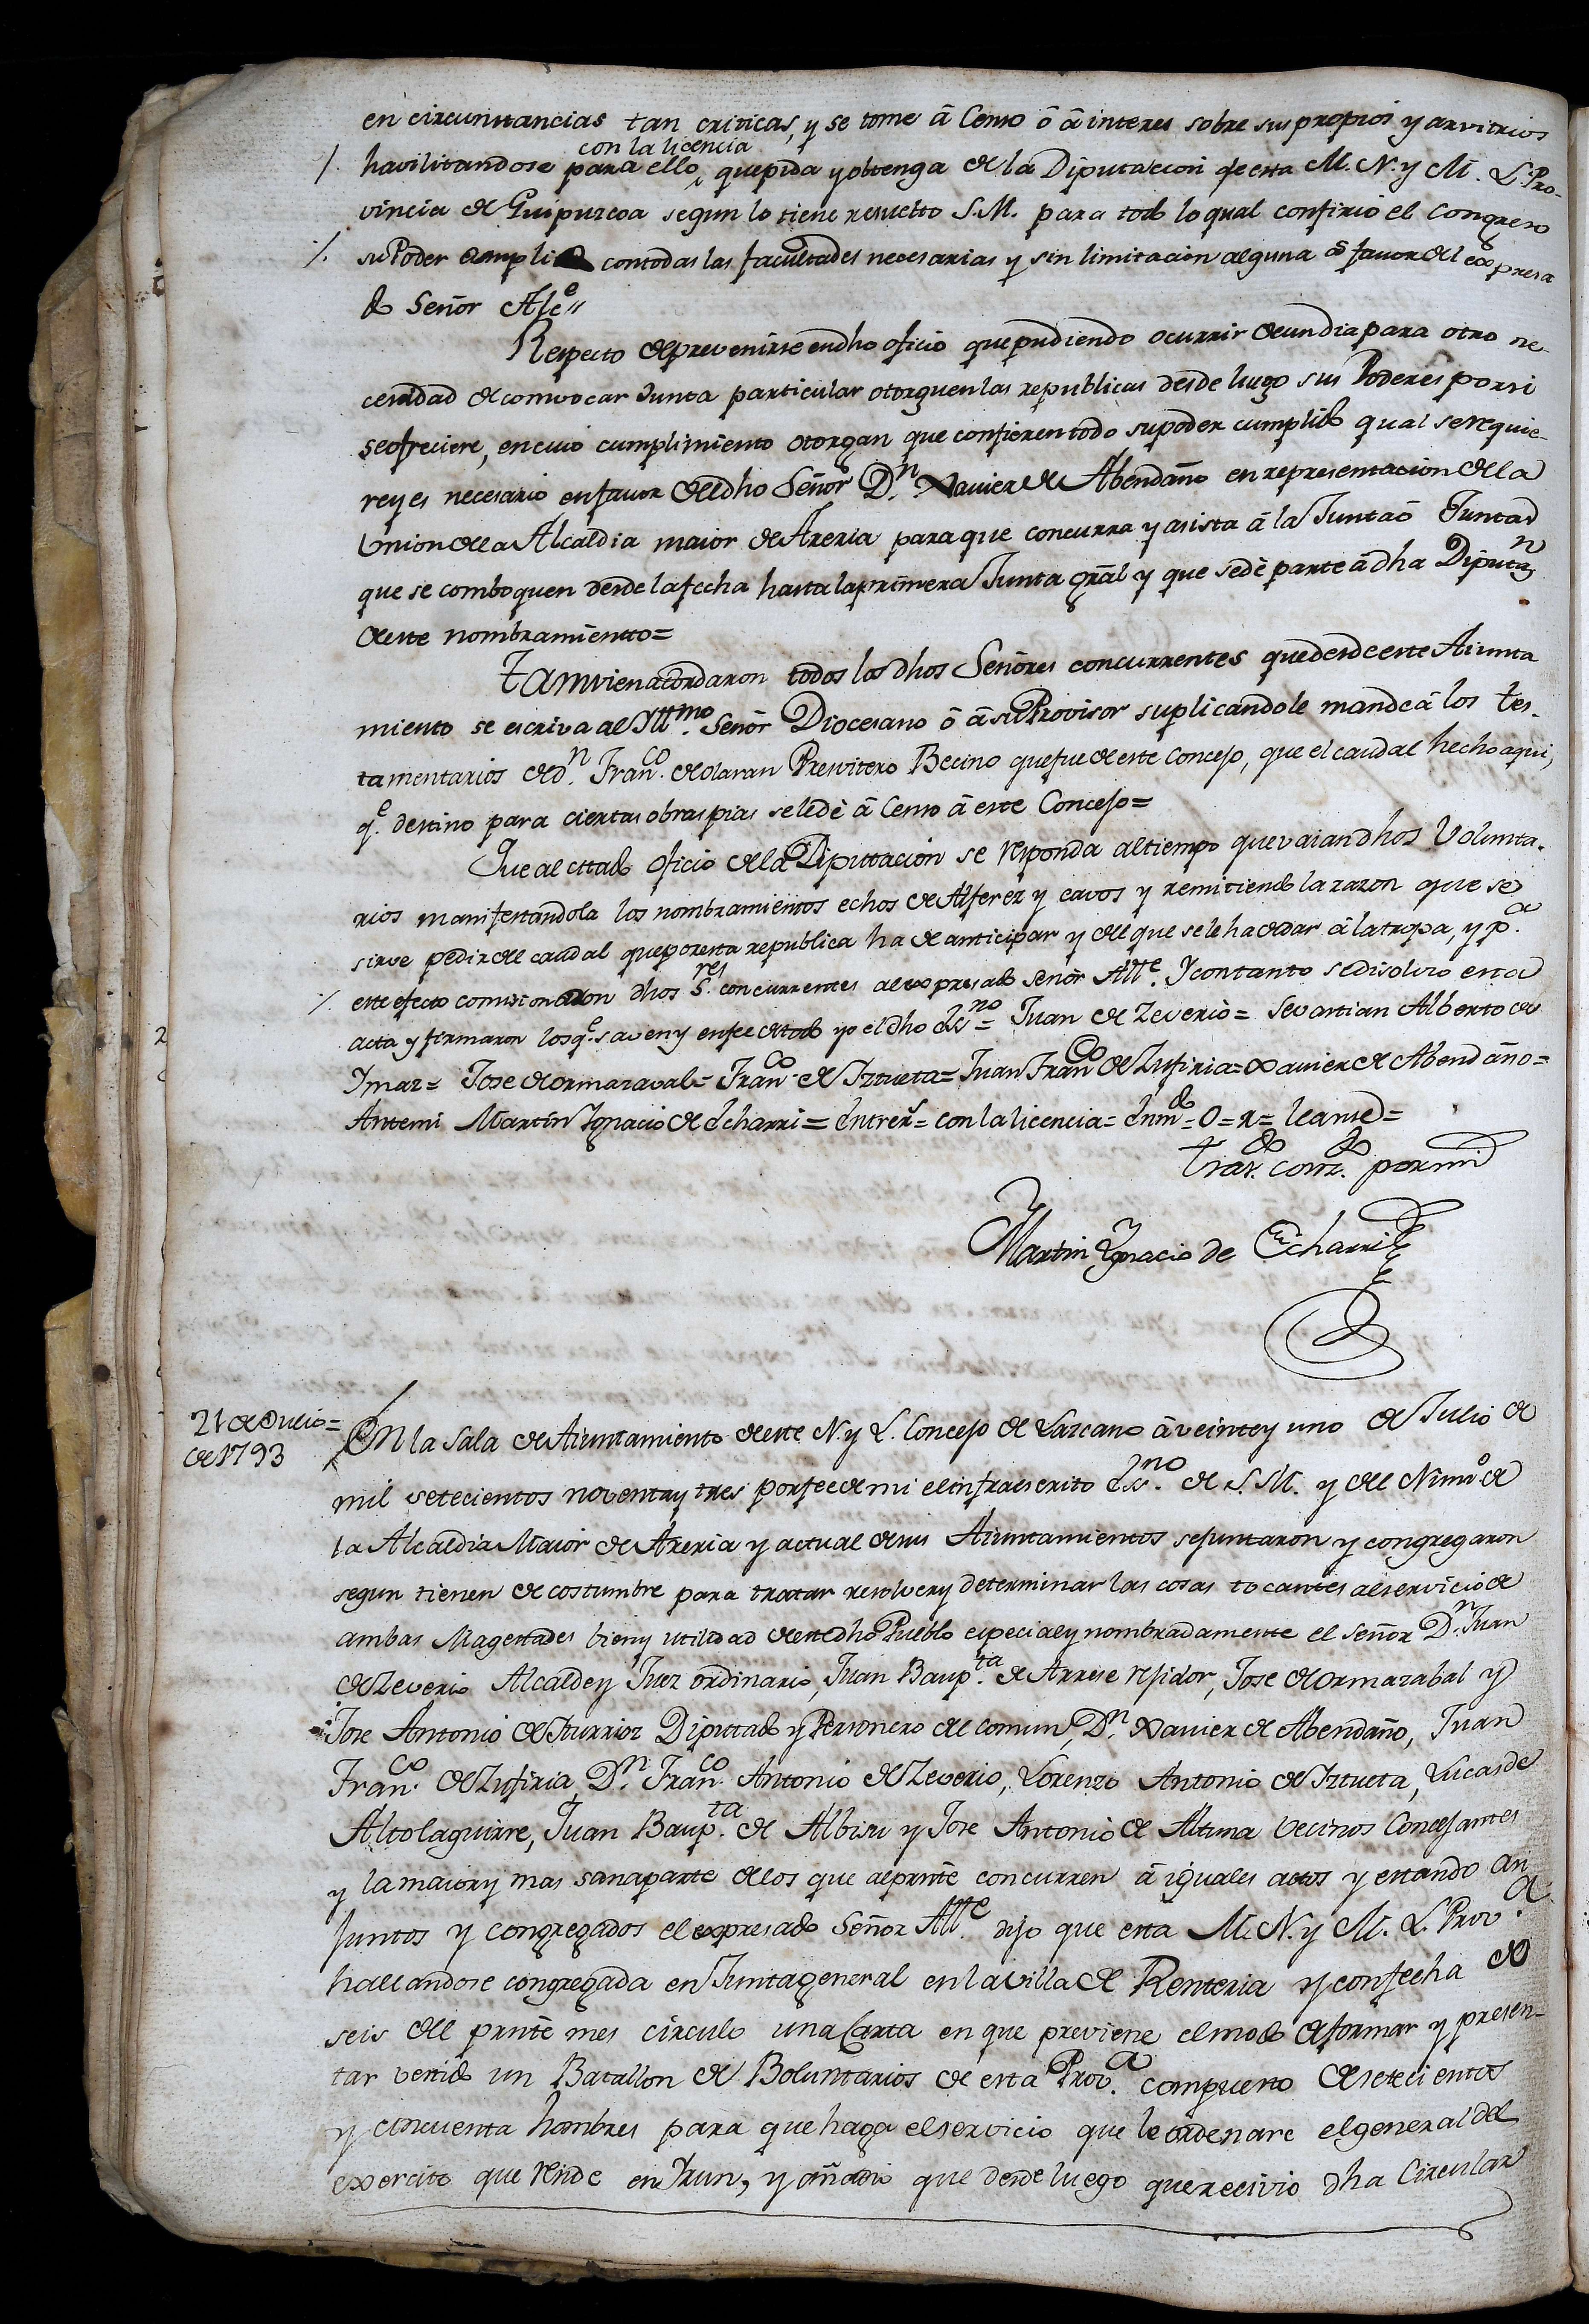 en circunstancias tan criticas, y se tome â Censo ô â interes sobre sus propios y arvitrios
con la licencia
havilitandose para ello, que pida y obtenga de la Diputacion de esta M. N. y M. L. Pro-
vincia de Guipuzcoa segun lo tiene resuelto S.M. para todo lo qual confirió el Congreso
su Poder amplio con todas las facultades necesarias y sin limitacion alguna â favor del expresa
do Señor Alc.e
Respecto de prevenirse en dho oficio que pudiendo ocurrir de un dia para otro ne-
cesidad de convocar Junta particular otorguen las republicas desde luego sus Poderes por si
se ofreciere, en cuio cumplimiento otorgan que confieren todo su poder cumplido qual se requie-
re y es necesario en favor del dho Señor D.n Xavier de Abendaño en representacion de la
Union de la Alcaldia maior de Areria para que concurra y asista â la Junta ô Juntas
que se comboquen desde la fecha hasta la primera Junta gral y que se dè parte â dha Diput.n
de este nombramiento=
Tamvien acordaron todos los dhos Señores concurrentes que desde este Aiunta
miento se escriva al Yll.mo Señor Diocesano ô â su Provisor suplicandole mande â los tes-
tamentarios de d.n Fran.co de Olaran Presvitero Becino que fue de este Concejo, que el caudal hecho aqui,
q.e destino para ciertas obras pias se le dè â Censo â este Concejo=
Que al citado oficio de la Diputacion se responda al tiempo que vaian dhos Volunta-
rios manifestandola los nombramientos echos de Alferez y cavos y remitiendo la razon que se
sirve pedir del caudal que por esta republica ha de anticipar y del que se le ha de dar â la tropa, y p.a
este efecto comisionaron dhos S.res concurrentes al expresado señor Al.e Y con tanto se disolvio esta
acta y firmaron los q.e saven y en fee de todo yo el dho Ess.no= Juan de Zeverio= Sevastian Alberto de
Ymaz= Jose de Ormazaval= Fran.co de Iztueta= Juan Fran.co de Zufiria= Xavier de Abendaño=
Antemi Martin Ygnacio de Echarri= Entrer.s= con la licencia= Enm.do= O= x= leamse=
Tras.do corr.do por mi
Martin Ygnacio de Echarri
21 de Julio=
de 1793
En la Sala de Aiuntamiento de este N. y L. Concejo de Lazcano â veinte y uno de Julio de
mil setecientos noventa y tres por fee de mi el infraescrito Ess.no de S.M. y del Num.o de
la Alcaldia Maior de Areria y actual de sus Aiuntamientos se juntaron y congregaron
segun tienen de costumbre para tratar resolver y determinar las cosas tocantes al servicio de
ambas Magestades bien y utilidad de este dho Pueblo especial y nombradamente el señor D.n Juan
de Zeverio Alcalde y Juez ordinario, Juan Baup.ta de Arrese rejidor, Jose de Ormazabal y
Jose Antonio de Iturrioz Diputado y Personero del comun, D.n Xavier de Abendaño, Juan
Fran.co de Zufiria, D.n Fran.co Antonio de Zeverio, Lorenzo Antonio de Iztueta, Lucas de
Altolaguirre, Juan Baup.ta de Albisu y Jose Antonio de Altuna Vecinos Concejantes
y la maior y mas sana parte de los que al prnte concurren â iguales actos y estando an
juntos y congregados el expresado Señor Al.e dijo que esta M. N. y M. L. Prov.a
hallandose congregada en Junta general en la villa de Renteria y con fecha de
seis del prnte mes circulo una Carta en que previene el modo de formar y presen-
tar vestido un Batallon de Boluntarios de esta Prov.a compuesto de setecientos
y cincuenta hombres para que haga el servicio que le ordenare el general del
exercito que reside en Yrun, y añadio que desde luego que recivio dha Circular